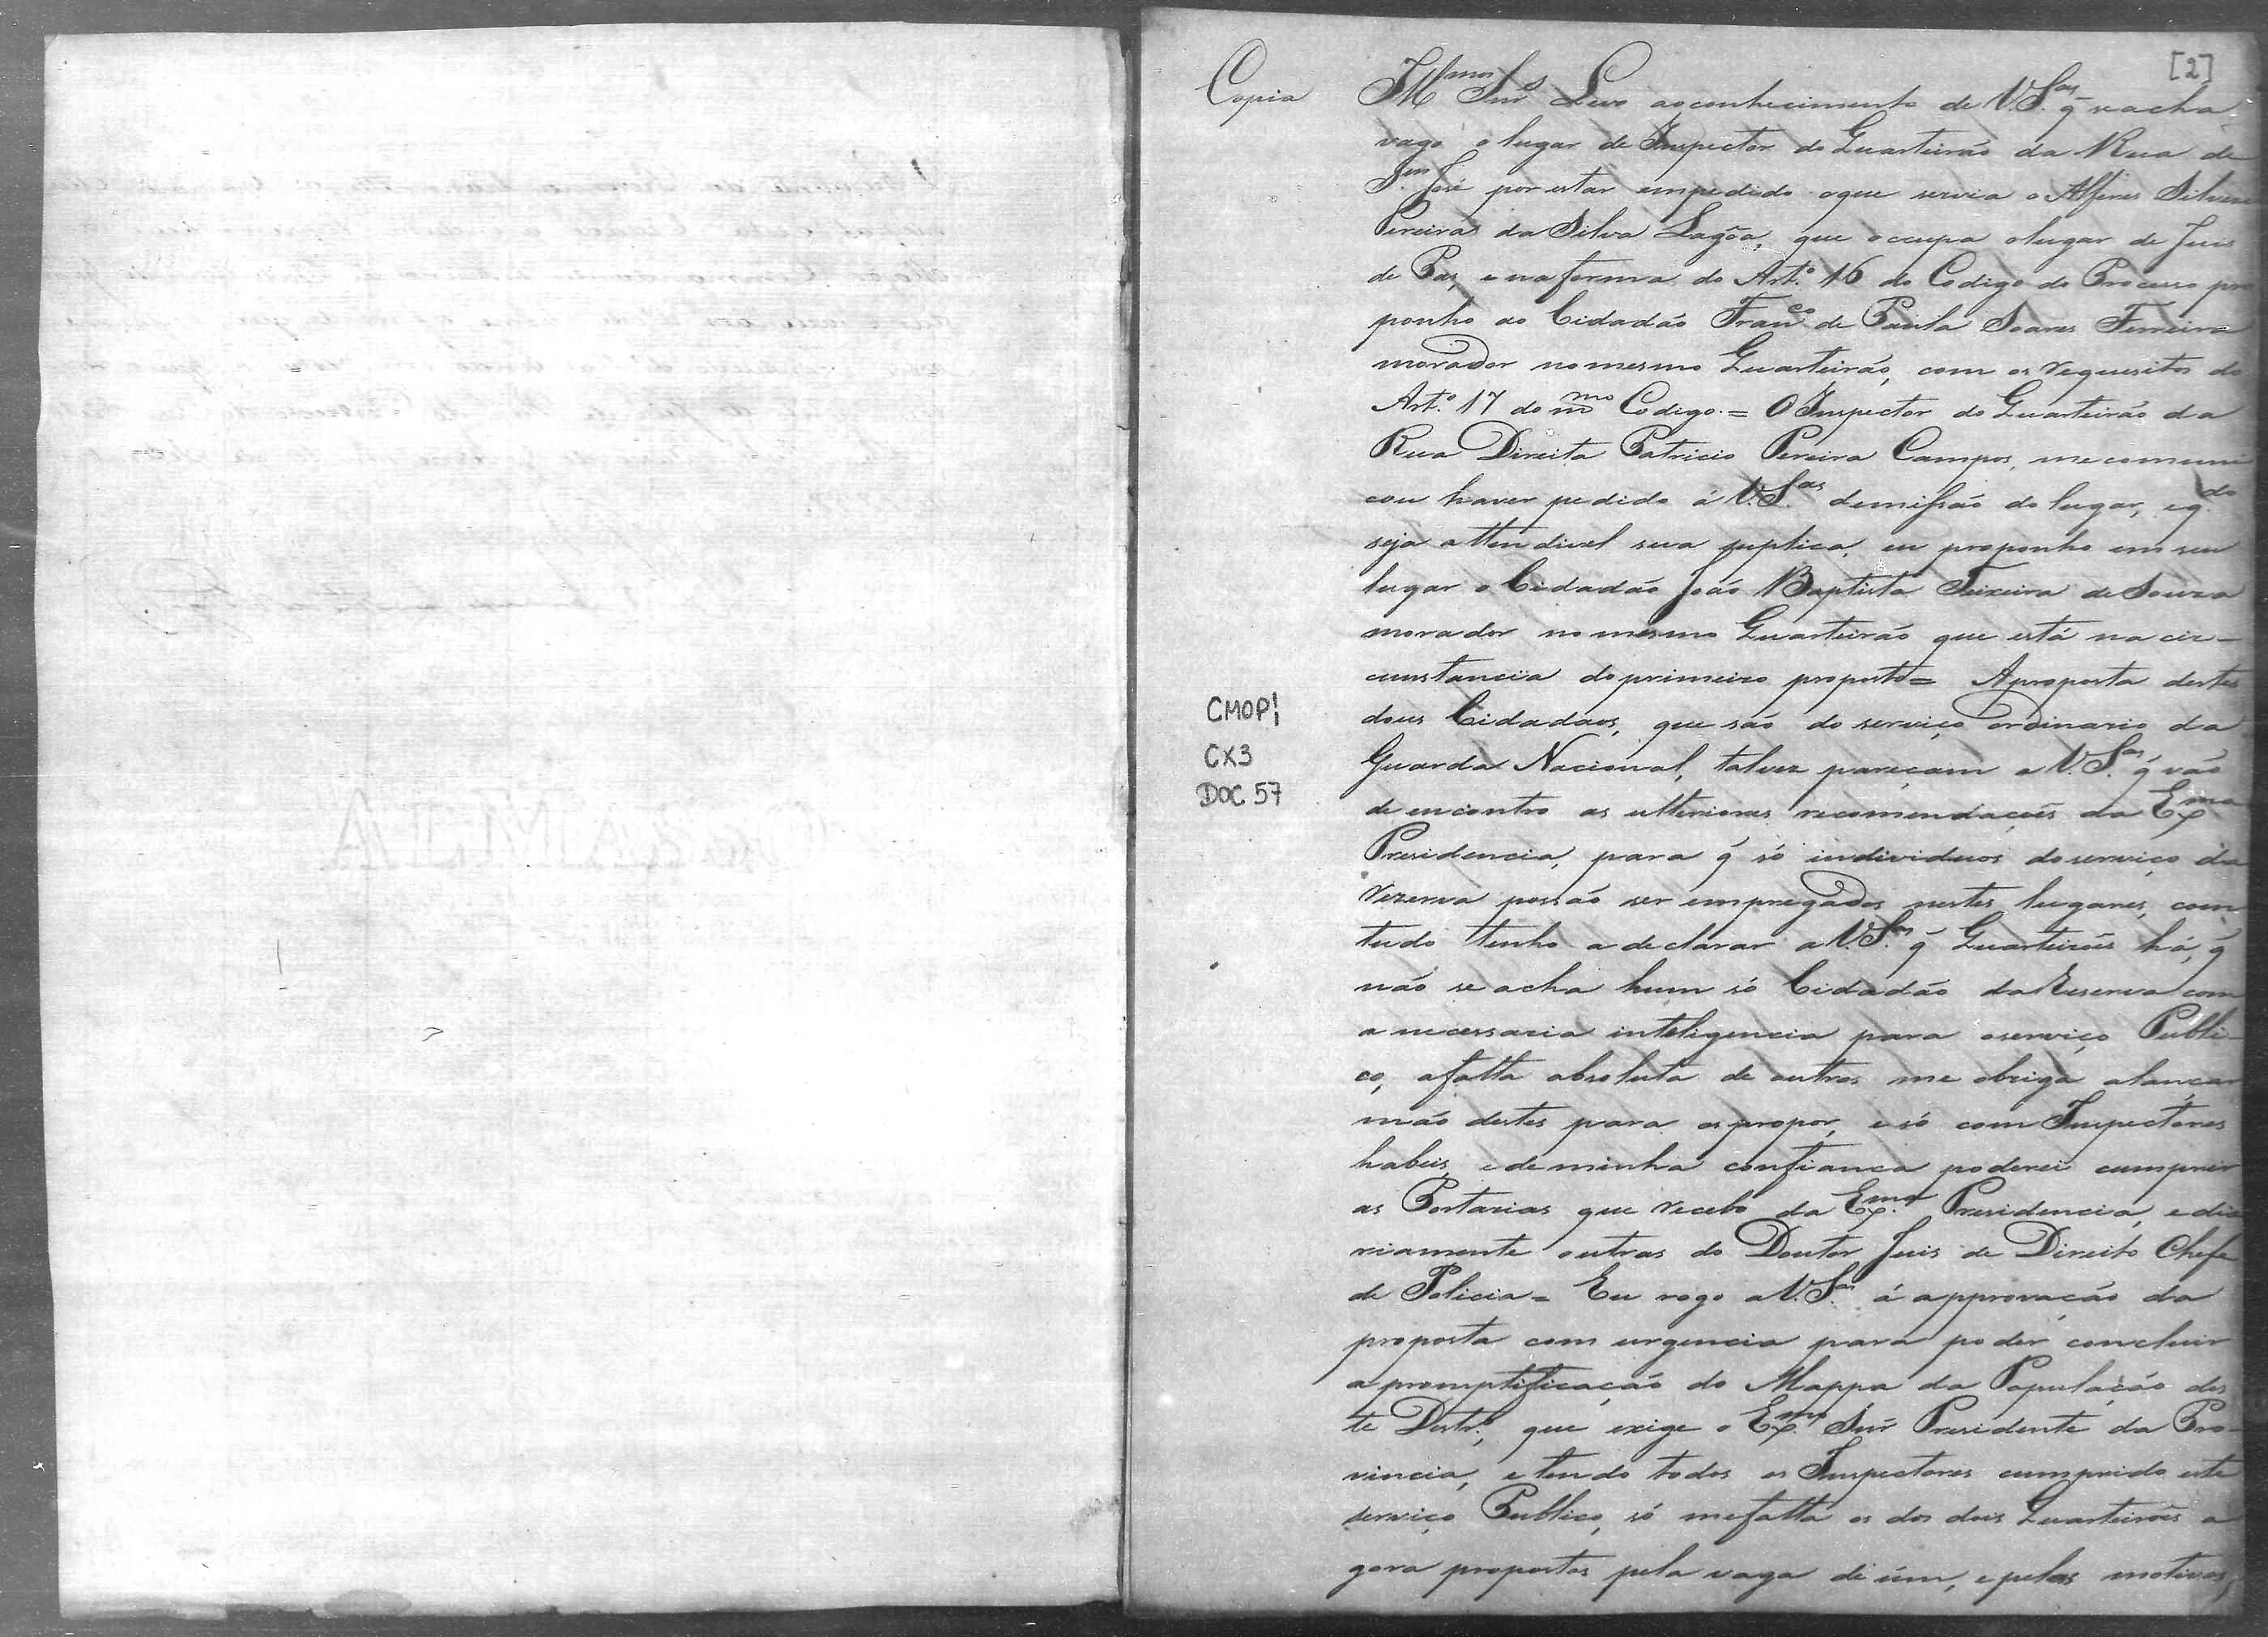 [2]
Copia
Illmos Snrs Levo aoconhecimento de V.Sas q̃ seacha
vago o lugar de Inspector do Quarteirão da Rua de
S.m José por estar empedido oque servia o Alferes Silverio
Pereira da Silva Lagôa, que occupa olugar de Juis
de Pas, e naforma do Art.º 16 do Codigo do Processo pro
ponho ao Cidadão Franco de Paula Soares Ferreira
morador nomesmo Quarteirão, com os requesitos do
Art.º 17 do mmo Codigo. = O Inspector do Quarteirão da
Rua Direita Patricio Pereira Campos, mecomuni
cou haver pedido á V.Sas demissão do lugar, eq.do
seja attendivel sua suplica, eu proponho em seu
lugar o Cidadão João Baptista Teixeira de Souza
morador no mesmo Quarteirão que está na cir-
cunstancia doprimeiro proposto = Aproposta destes
dous Cidadãos, que são do serviço ordinario da
Guarda Nacional, talvez pareçam a V.Sas q̃ vão
de encontro as ulteriores recomendações da Exma
Presidencia, para q̃ só individuos doserviço da
rezerva possão ser empregados nestes lugares, com
tudo tenho a declarar a V.Sas q̃ Quarteirões há, q̃
não se acha hum só Cidadão da Reserva com
a necessaria inteligencia para oserviço Publi-
co, afalta absoluta de outros me obriga alançar
mão destes para ospropor, e só com Inspectores
habeis, e deminha confianca poderei cumprir
as Portarias que recebo da Exma Presidencia, e dia
riamente outras do Doutor Juis de Direito Chefe
de Policia = Eu rogo a V.Sas á approvacão da
proposta com urgencia para poder concluir
apromptificação do Mappa da População des
te Destr.º, que exige o Exmo Snr Presidente da Pro-
vincia, e tendo todos os Inspectores cumprido este
serviço Publico, só mefalta os dos dois Quarteirões a
gora propostos pela vaga de úm, epelos motivos
CMOP!
CX3
DOC. 57